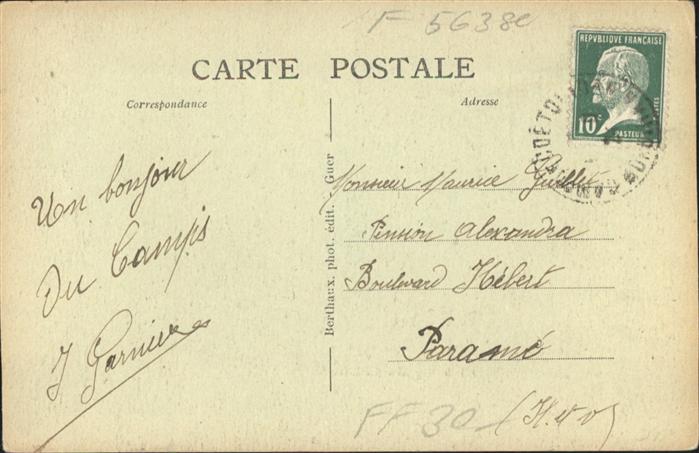 F 5638e
CARTE POSTALE
Correspondance
Adresse
REPVBLIQUE FRANÇAISE
10c
PASTEUR
POSTES
Un bonjour
Du Camp
J Garnier
Berthaux. phot. édit. Guer
Monsieur Maurice Guillet
Pension Alexandra
Boulevard Hébert
Paramé
(I. et V)
FF 30